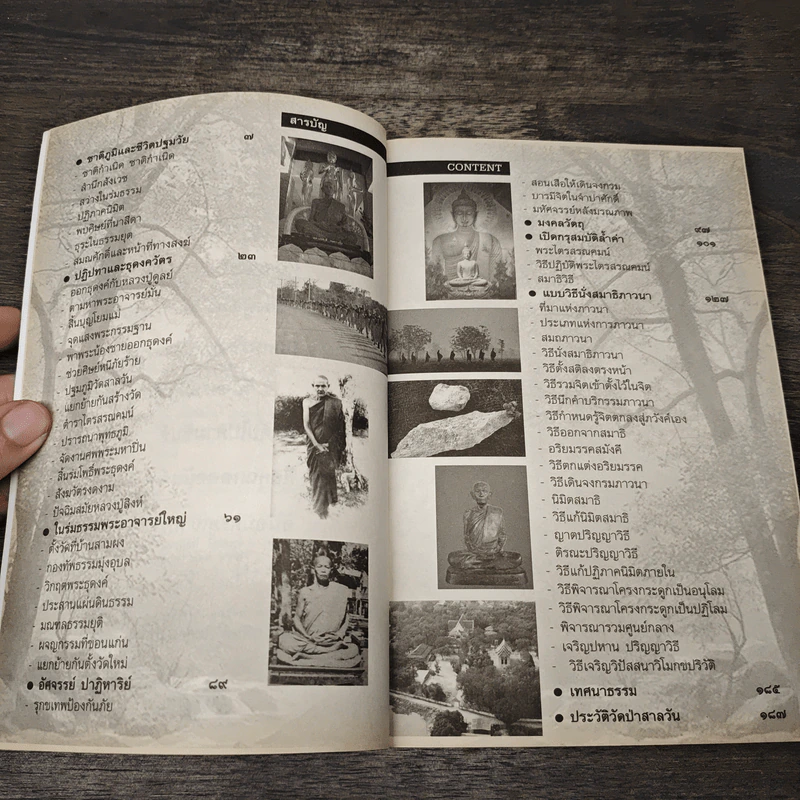 สารบัญ
● ชาติภูมิและชีวิตปฐมวัย ๗
- ชาติกำเนิด ชาติกำเนิด
- สำนึกสังเวช
- สว่างในร่มธรรม
- ปฏิภาคนิมิต
- พบศิษย์ที่นาสีดา
- ธุระในธรรมยุต
- สมณศักดิ์และหน้าที่ทางสงฆ์
● ปฏิปทาและธุดงควัตร ๒๓
- ออกธุดงค์กับหลวงปู่ดูลย์
- ตามหาพระอาจารย์มั่น
- สิ้นบุญโยมแม่
- จุดแสงพระกรรมฐาน
- พาพระน้องชายออกธุดงค์
- ช่วยศิษย์หนีภัยร้าย
- ปฐมภูมิวัดสาลวัน
- แยกย้ายกันสร้างวัด
- ตำราไตรสรณคมน์
- ปรารถนาพุทธภูมิ
- จัดงานศพพระมหาปิ่น
- สิ้นร่มโพธิ์พระธุดงค์
- สังฆวัตรงดงาม
- ปัจฉิมสมัยหลวงปู่สิงห์
● ในร่มธรรมพระอาจารย์ใหญ่ ๖๑
- ตั้งวัดที่บ้านสามผง
- กองทัพธรรมมุ่งอุบล
- วิกฤตพระธุดงค์
- ประสานแผ่นดินธรรม
- มณฑลธรรมยุติ
- ผจญกรรมที่ขอนแก่น
- แยกย้ายกันตั้งวัดใหม่
● อัศจรรย์ ปาฏิหาริย์ ๘๙
- รุกขเทพป้องกันภัย
CONTENT
- สอนเสือให้เดินจงกรม
- บารมีจิตในจำปาศักดิ์
- มหัศจรรย์หลังมรณภาพ
● มงคลวัตถุ ๙๗
● เปิดกรุสมบัติล้ำค่า ๑๐๑
- พระไตรสรณคมน์
- วิธีปฏิบัติพระไตรสรณคมน์
- สมาธิวิธี
● แบบวิธีนั่งสมาธิภาวนา ๑๒๗
- ที่มาแห่งภาวนา
- ประเภทแห่งการภาวนา
- สมถภาวนา
- วิธีนั่งสมาธิภาวนา
- วิธีตั้งสติลงตรงหน้า
- วิธีรวมจิตเข้าตั้งไว้ในจิต
- วิธีนึกคำบริกรรมภาวนา
- วิธีกำหนดรู้จิตตกลงสู่ภวังค์เอง
- วิธีออกจากสมาธิ
- อริยมรรคสมังคี
- วิธีตกแต่งอริยมรรค
- วิธีเดินจงกรมภาวนา
- นิมิตสมาธิ
- วิธีแก้นิมิตสมาธิ
- ญาตปริญญาวิธี
- ติรณะปริญญาวิธี
- วิธีแก้ปฏิภาคนิมิตภายใน
- วิธีพิจารณาโครงกระดูกเป็นอนุโลม
- วิธีพิจารณาโครงกระดูกเป็นปฏิโลม
- พิจารณารวมศูนย์กลาง
- เจริญปหาน ปริญญาวิธี
- วิธีเจริญวิปัสสนาวิโมกขปริวัติ
● เทศนาธรรม ๑๘๕
● ประวัติวัดป่าสาลวัน ๑๘๗